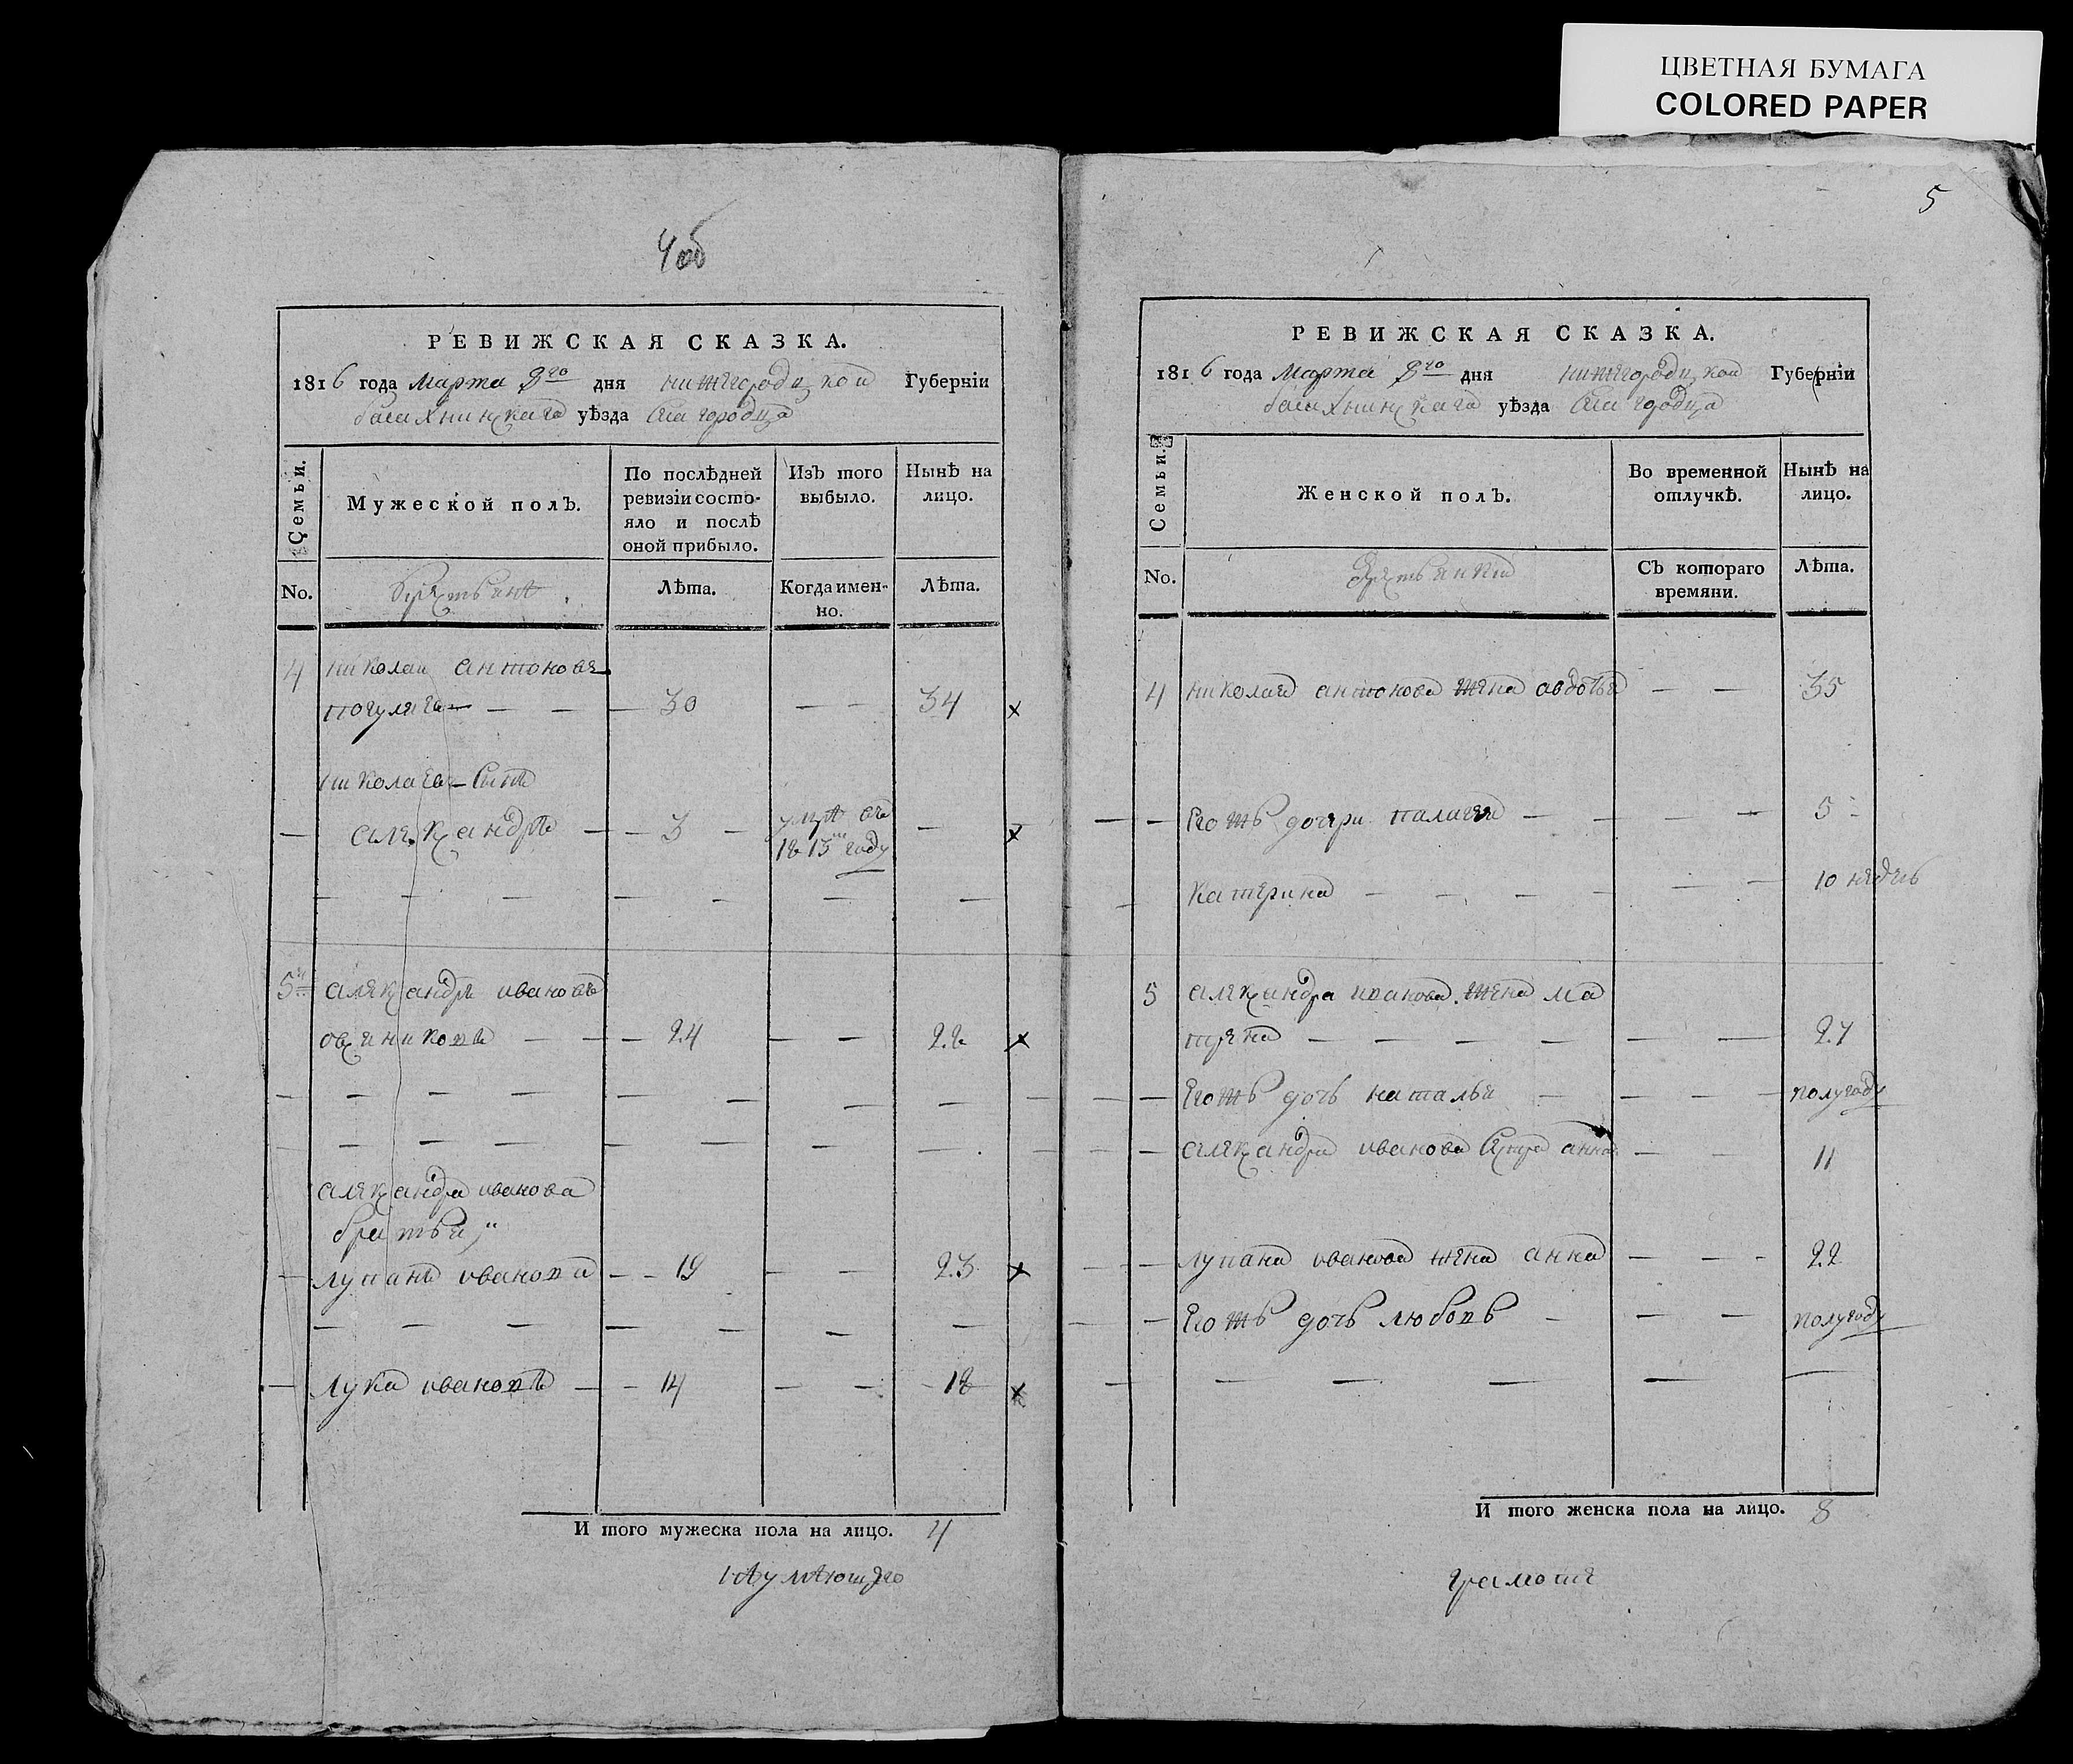 ЦВЕТНАЯ БУМАГА
COLORED PAPER
4об
РЕВИЖСКАЯ СКАЗКА.
1816 года Марта 8го дня нижегородцкой Губернїи
балахнинскага уѣзда села городца
Семьи.
Мужеской полъ.
По послѣдней ревизїи состояло и послѣ оной прибыло.
Изъ того выбыло.
Нынѣ на лицо.
No.
Лѣта.
Когда именно.
Лѣта.
4 николаи антоновъ
30 34 х
николаевъ сынъ
александръ 3 умре въ 1813м году х
5й александръ ивановъ
овсяниковъ 24 28 х
александра иванова
братья
лупанъ иванова 19 23 х
лука ивановъ 14 18 х
И того мужеска пола на лицо. 4
5
РЕВИЖСКАЯ СКАЗКА.
1816 года Марта 8го дня нижегородцкой Губернїи
балахнинскага уѣзда села городца
Семьи.
Женской полъ.
Во временной отлучкѣ.
Нынѣ на лицо.
No.
Съ котораго времяни.
Лѣта.
4 николая антонова жена авдотья 35
Его жъ дочери палагея 5
катерина 10 недель
5 александра иванова жена ма
трена 27
Его жъ дочь наталья полугоду
александра иванова сестра анна 11
лупана иванова жена анна 22
Его жъ дочь любовь полугоду
И того женска пола на лицо. 8
грамоте